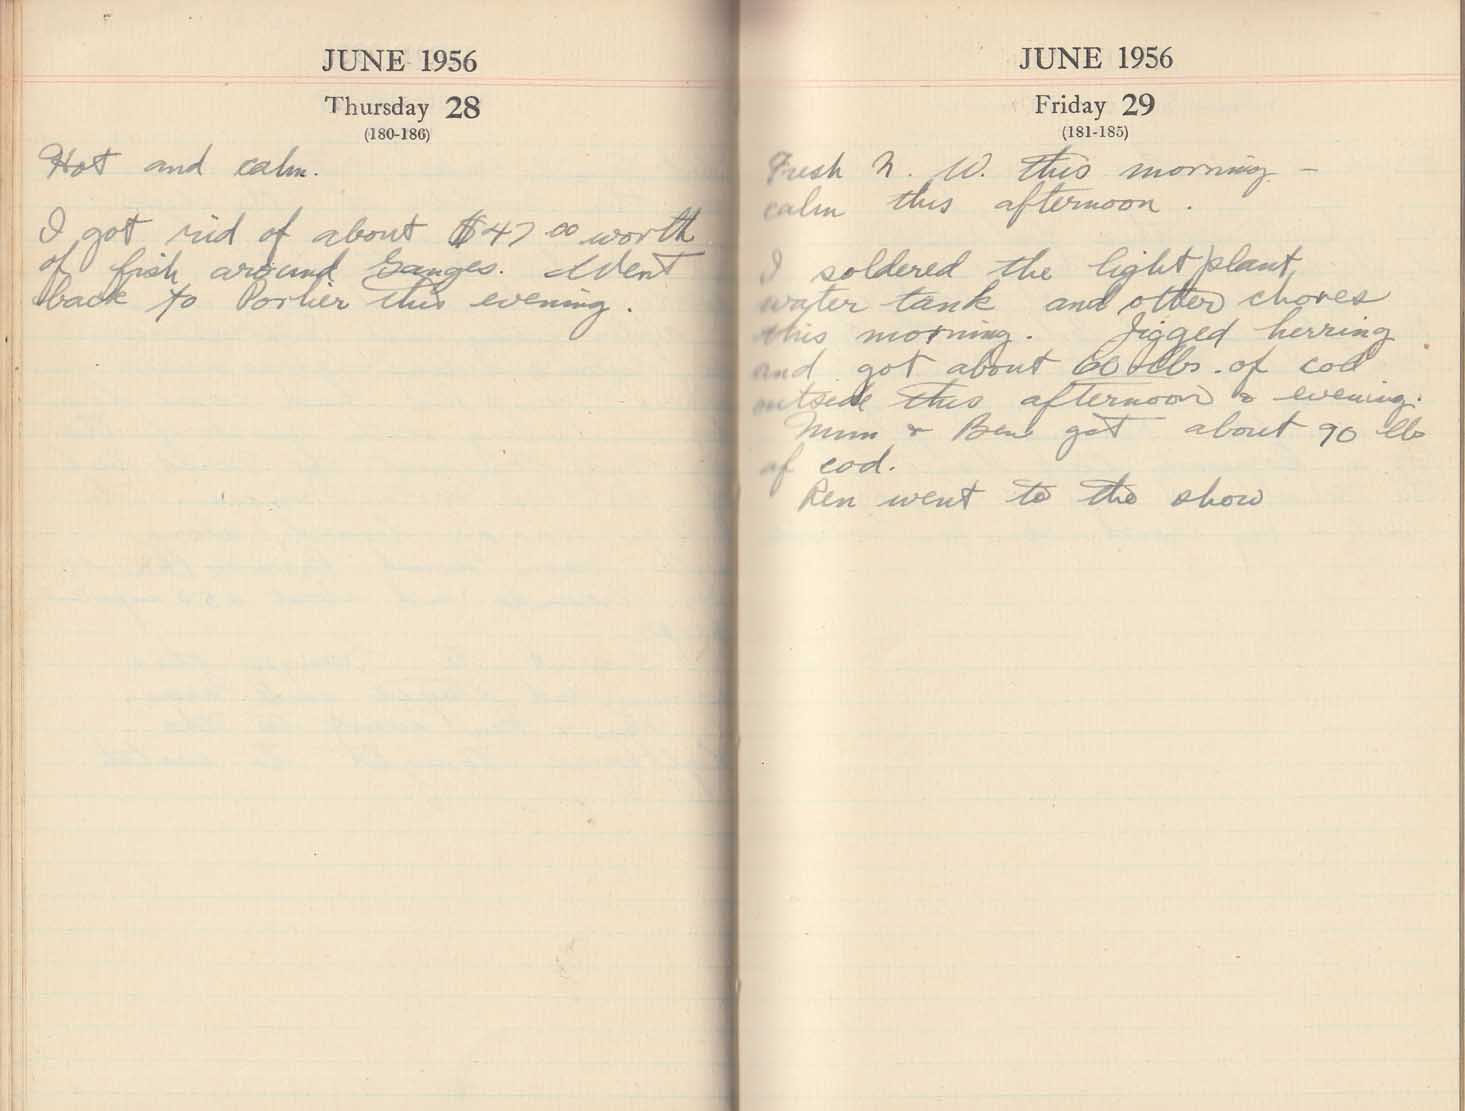 JUNE 1956
Thursday 28
(180-186)
Hot and calm.
I got rid of about $47 00 worth
of fish around Ganges. Went
back to Porlier this evening.
JUNE 1956
Friday 29
(181-185)
Fresh N. W. this morning -
calm this afternoon.
I soldered the light plant
water tank and other chores
this morning. Jigged herring
and got about 60 lbs. of cod
outside this afternoon & evening.
Mum & Ben got about 90 lbs
of cod.
Ren went to the show